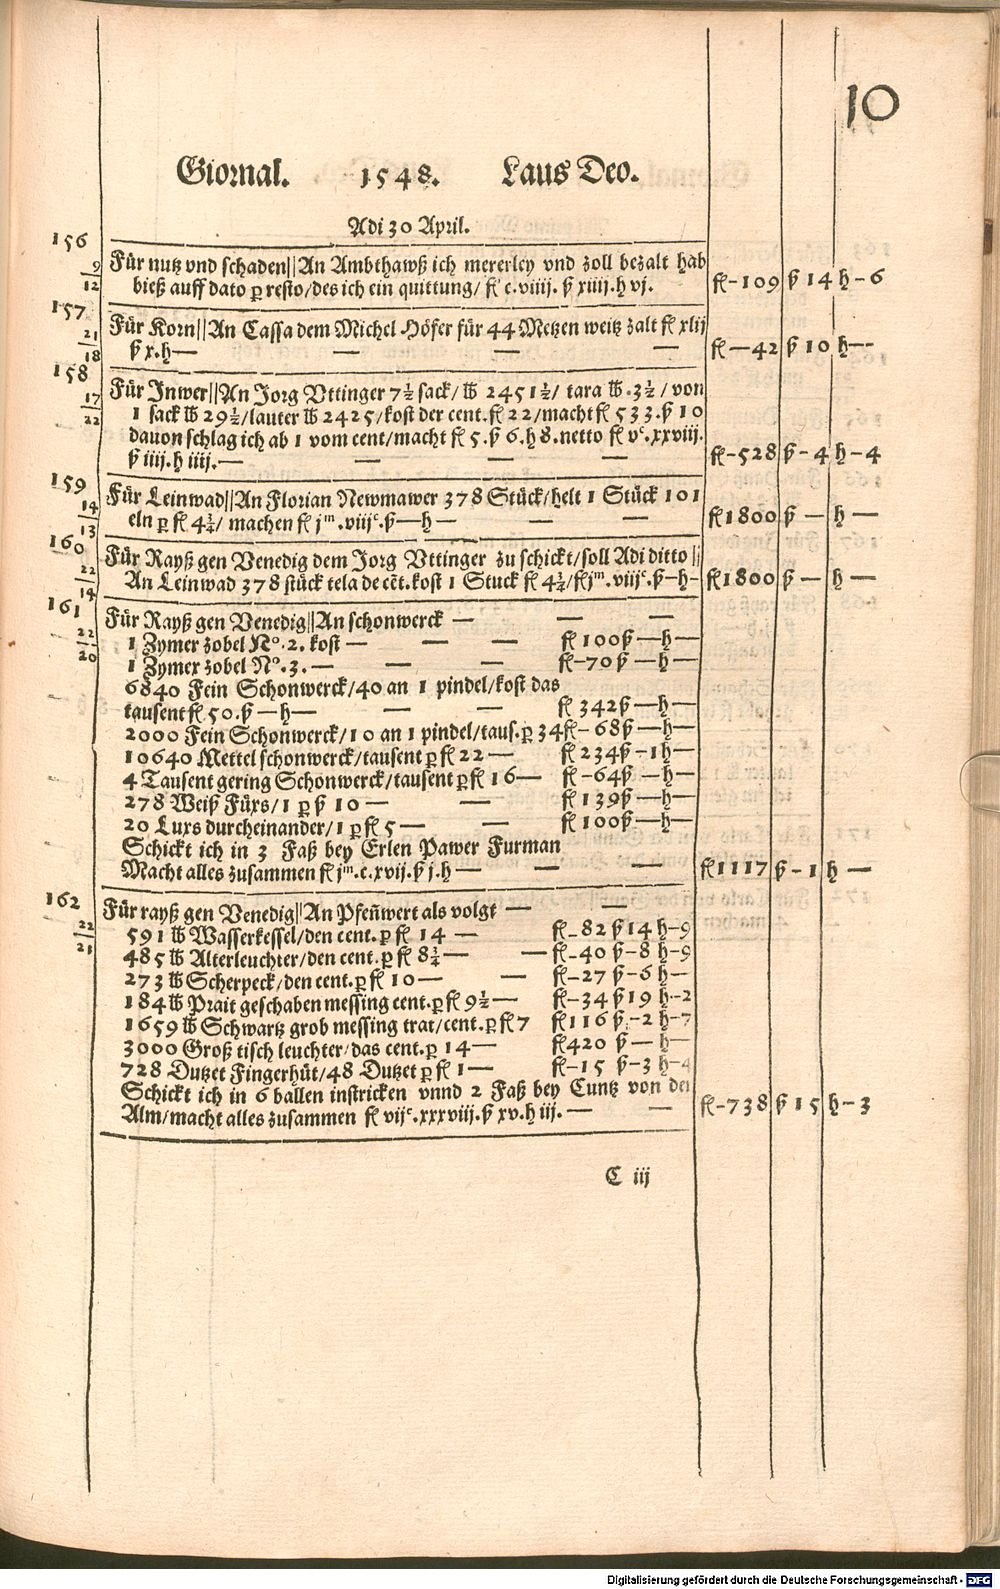 10
Giornal. 1548. Laus Deo.
Adi 30 April.
156
9
12
Für nutz vnd schaden||An Ambthawß ich mererley vnd zoll bezalt hab
bieß auff dato ꝑ resto/des ich ein quittung/ fl c.viiij. ß xiiij.h vj. fl-109 ß 14 h-6
157
21
18
Für Korn||An Cassa dem Michel Höfer für 44 Metzen weitz zalt fl xlij
ß x.h— — — — fl—42 ß 10 h—
158
17
22
Für Inwer||An Jorg Vttinger 7½ sack/ ℔ 2451½/ tara ℔.3½/ von
1 sack ℔ 29½/lauter ℔ 2425/kost der cent.fl 22/macht fl 533.ß 10
dauon schlag ich ab 1 vom cent/macht fl 5.ß 6.h 8.netto fl vᶜ.xxviij.
ß iiij.h iiij.— — — — fl-528 ß-4 h-4
159
14
13
Für Leinwad||An Florian Newmawer 378 Stück/helt 1 Stück 101
eln ꝑ fl 4¾/ machen fl jᵐ.viijᶜ.ß—h— — — fl1800 ß— h—
160
22
14
Für Rayß gen Venedig dem Jorg Vttinger zu schickt/soll Adi ditto||
An Leinwad 378 stück tela de cēt.kost 1 Stuck fl 4¾/fl jᵐ.viijᶜ.ß-h- fl1800 ß— h—
161
22
20
Für Rayß gen Venedig||An schonwerck — — —
1 Zymer zobel Nº.2. kost — — fl 100ß—h—
1 Zymer zobel Nº.3.— — — fl-70ß—h—
6840 Fein Schonwerck/40 an 1 pindel/kost das
tausent fl 50.ß—h— — — fl 342ß—h—
2000 Fein Schonwerck/10 an 1 pindel/taus.ꝑ 34fl-68ß—h—
10640 Mettel schonwerck/tausent ꝑ fl 22— fl 234ß-1h—
4 Tausent gering Schonwerck/tausent ꝑ fl 16— fl-64ß—h—
278 Weiß Füxs/1 ꝑ ß 10 — — fl 139ß—h—
20 Luxs durcheinander/1 ꝑ fl 5— — fl 100ß—h—
Schickt ich in 3 Faß bey Erlen Pawer Furman
Macht alles zusammen fl jᵐ.c.xvij.ß j.h— — — fl1117 ß-1 h—
162
22
21
Für rayß gen Venedig||An Pfen̄wert als volgt — —
591 ℔ Wasserkessel/den cent.ꝑ fl 14 — fl-82 ß14 h-9
485 ℔ Alterleuchter/den cent.ꝑ fl 8¼— — fl-40 ß-8 h-9
273 ℔ Scherpeck/den cent.ꝑ fl 10— fl-27 ß-6 h—
184 ℔ Prait geschaben messing cent.ꝑ fl 9½— fl-34 ß19 h-2
1659 ℔ Schwartz grob messing trat/cent.ꝑ fl 7 fl116 ß-2 h-7
3000 Groß tisch leuchter/das cent.ꝑ 14— fl420 ß— h—
728 Dutzet Fingerhüt/48 Dutzet ꝑ fl 1— fl-15 ß-3 h-4
Schickt ich in 6 ballen instricken vnnd 2 Faß bey Cuntz von der
Alm/macht alles zusammen fl vijᶜ.xxxviij.ß xv.h iij.— — fl-738 ß15 h-3
C iij
Digitalisierung gefördert durch die Deutsche Forschungsgemeinschaft - DFG